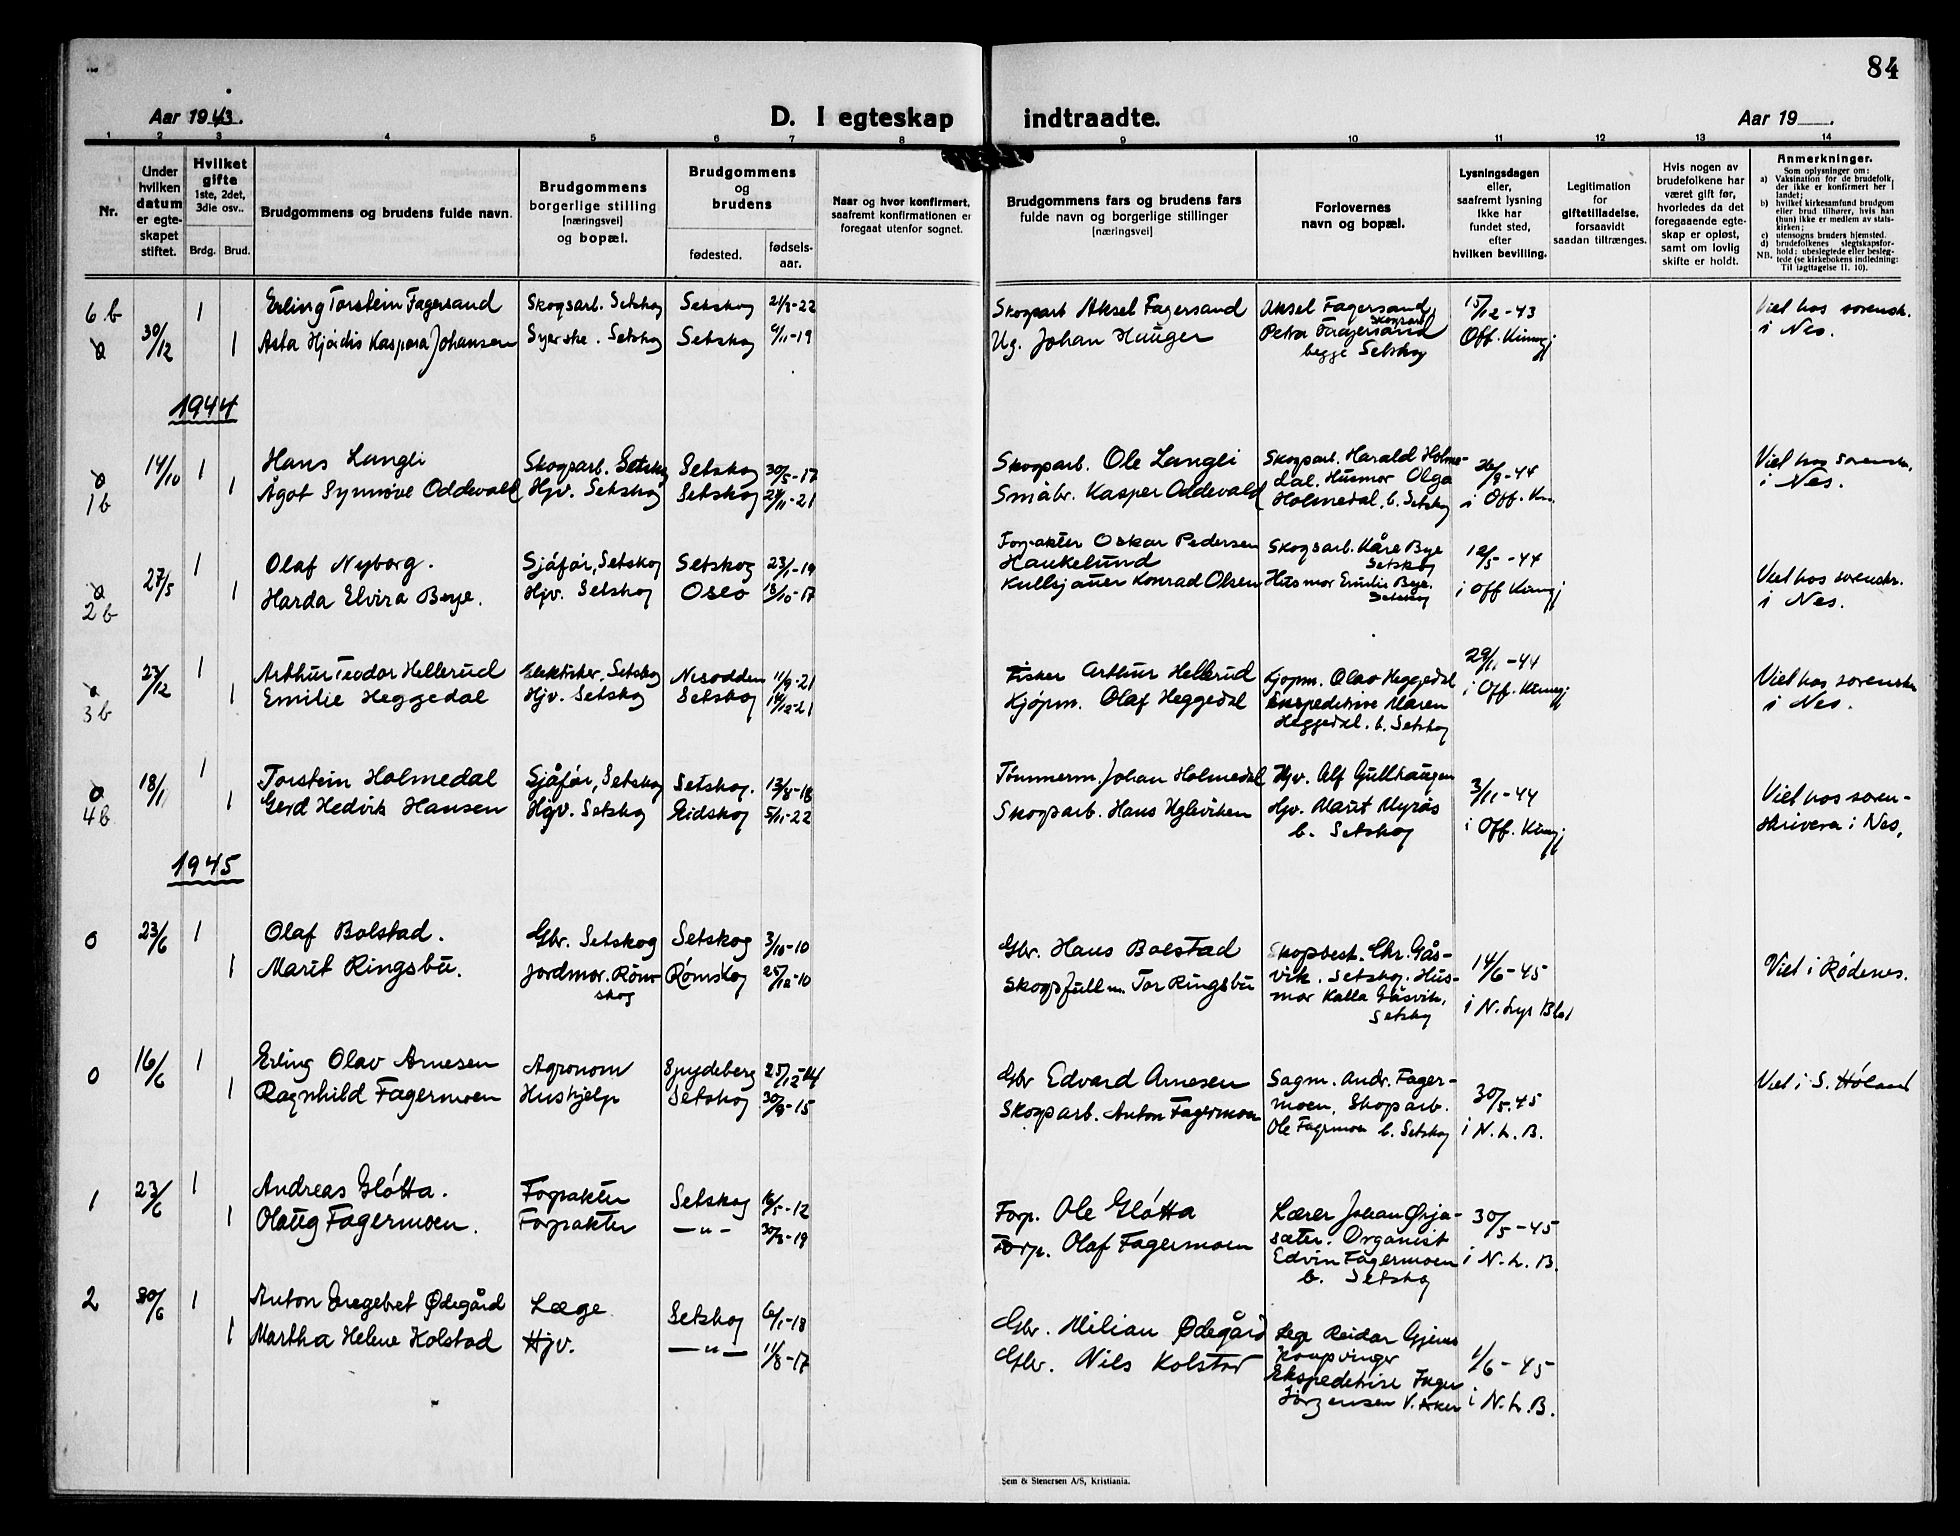 84
Aar 1943.
D. I egteskap indtraadte.
Aar 19
1 2 3 4 5 6 7 8 9 10 11 12 13 14
Nr.
Under hvilken datum er egteskapet stiftet.
Hvilket gifte 1ste, 2det, 3die osv..
Brdg. Brud.
Brudgommens og brudens fulde navn.
Brudgommens borgerlige stilling [næringsvei] og bopæl.
Brudgommens og brudens
fødested.
fødsels-aar.
Naar og hvor konfirmert, saafremt konfirmationen er foregaat utenfor sognet.
Brudgommens fars og brudens fars fulde navn og borgerlige stillinger [næringsvei]
Forlovernes navn og bopæl.
Lysningsdagen eller, saafremt lysning ikke har fundet sted, efter hvilken bevilling.
Legitimation for giftetilladelse, forsaavidt saadan tiltrænges.
Hvis nogen av brudefolkene har været gift før, hvorledes da det foregaaende egteskap er opløst, samt om lovlig skifte er holdt.
Anmerkninger.
Som oplysninger om:
a) Vaksination for de brudefolk, der ikke er konfirmert her i landet;
b) hvilket kirkesamfund brudgom eller brud tilhører, hvis han (hun) ikke er medlem av statskirken;
c) utensogns bruders hjemsted.
d) brudefolkenes slegtskapsforhold: ubeslegtede eller beslegtede (se kirkebokens indledning:
NB. Til iagttagelse II. 10).
6 b 1 Erling Torstein Fagersand Skogsarb. Setskog Setskog 21/3-22 Skogarb Aksel Fagersand Aksel Fagersand, 15/12-43 Viet hos sorensk.
0 30/12 1 Asta Hjørdis Kaspara Johansen Syerske. Setskog Setskog 4/11-19 Ug. Johan Hauger Petra Fragersand begge Setskog Off. Kunngj i Nes.
1944
0 14/10 1 Hans Langli Skogsarb. Setskog Setskog 30/5-17 Skogarb. Ole Langli Skogarb. Harald Holme- 26/9-44 Viet hos sorensk.
1 b 1 Ågot Synnøve Oddevald Hjv. Setskog Setskog 24/11-21 Småbr. Kasper Oddevald dal. Husmor Olga Holmedal, b. Setskog i Off. Kun. i Nes.
1 Olaf Nyborg. Sjåfør, Setskog Setskog 23/1-19 Forpakter Oskar Pedersen Haukelund Skogsarb. Kåre Bye Setskog 12/5-44
0 2 b 27/5 1 Harda Elvira Bye. Hjv. Setskog Oslo 18/10-17 Kullsjauer Konrad Olsen Husmor Emilie Bye. Setskog i Off Kunngj Viet hos sorenskr. i Nes.
0 27/12 1 Arthur Teodor Hellerud Elektriker, Setskog Nesodden 11/9-21 Fisker Arthur Hellerud Kjøpm. Olav Heggedal 29/11-44 Viet hos sorenskr
3 b 1 Emilie Heggedal Hjv. Setskog Setskog 14/12-21 Kjøpm. Olaf Heggedal Ekspeditrise Maren Heggedal. b. Setskog i Off. Kunngj i Nes.
0 18/11 1 Torstein Holmedal Sjåfør, Setskog Setskog. 13/8-18 Tømmerm. Johan Holmedal Hjv. Alf Gullhaugen 3/11-44 Viet hos soren-
4 b 1 Gerd Hedvik Hansen Hgv. Setskog Eidskog 5/11-22 Skogarb. Hans Ugleviken Hjv. Marit Myrås b. Setskog i Off. Kunngj skrivera i Nes,
1945
0 23/6 1 Olaf Bolstad. Gbr. Setskog Setskog 3/10-10 Gbr. Hans Bolstad Skogbest. Chr. Gås- 14/6-45 Viet i Rødenes.
1 Marit Ringsbu. Jordmor. Rømskog Rømskog 25/12-10 Skogsfullm. Tor Ringsbu vik. Setskog. Husmor Kalla Gåsvik, Setskog i N. Lys Blad
0 16/6 1 Erling Olav Arnesen Agronom Spydeberg 25/12-14 Gbr Edvard Arnesen Sagm. Andr. Fager- 30/5.45 Viet i S. Høland
1 Ragnhild Fagermoen Hushjelp Setskog 30/9-15 Skogarb. Anton Fagermoen moen, Skogarb. Ole Fagermoen b. Setskog i N. L. B.
1 23/6 1 Andreas Gløtta. Forpakter Setskog 16/5-12 Forp. Ole Gløtta Lærer Johan Ørja- 30/5-45
1 Olaug Fagermoen. Forpakter —"— 30/3-19 Forp. Olaf Fagermoen sæter. Organist Edvin Fagermoen b. Setskog i N. L. B.
2 30/6 1 Anton Engebret Ødegård Læge Setskog 6/1-18 Gbr. Milian Ødegård Lege Reidar Gjems Kongsvinger 1/6-45
1 Martha Helene Kolstad Hjv. —"— 11/8-17 Gbr. Nils Kolstad Ekspeditrise Jørgensen V. Aker i N. L. B.
Sem & Stenersen A/S, Kristiania.